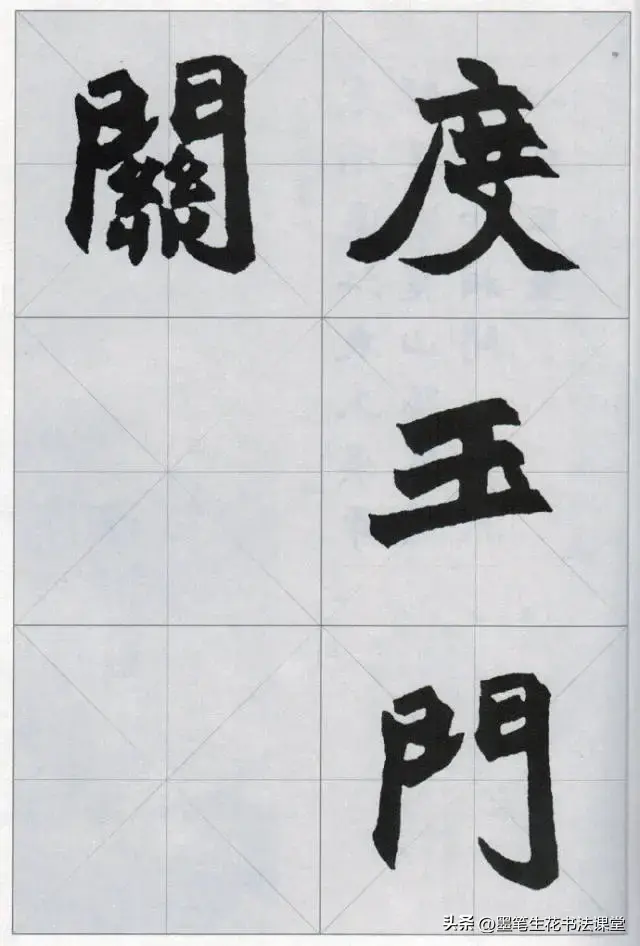 度玉門
關
头条 @墨笔生花书法课堂